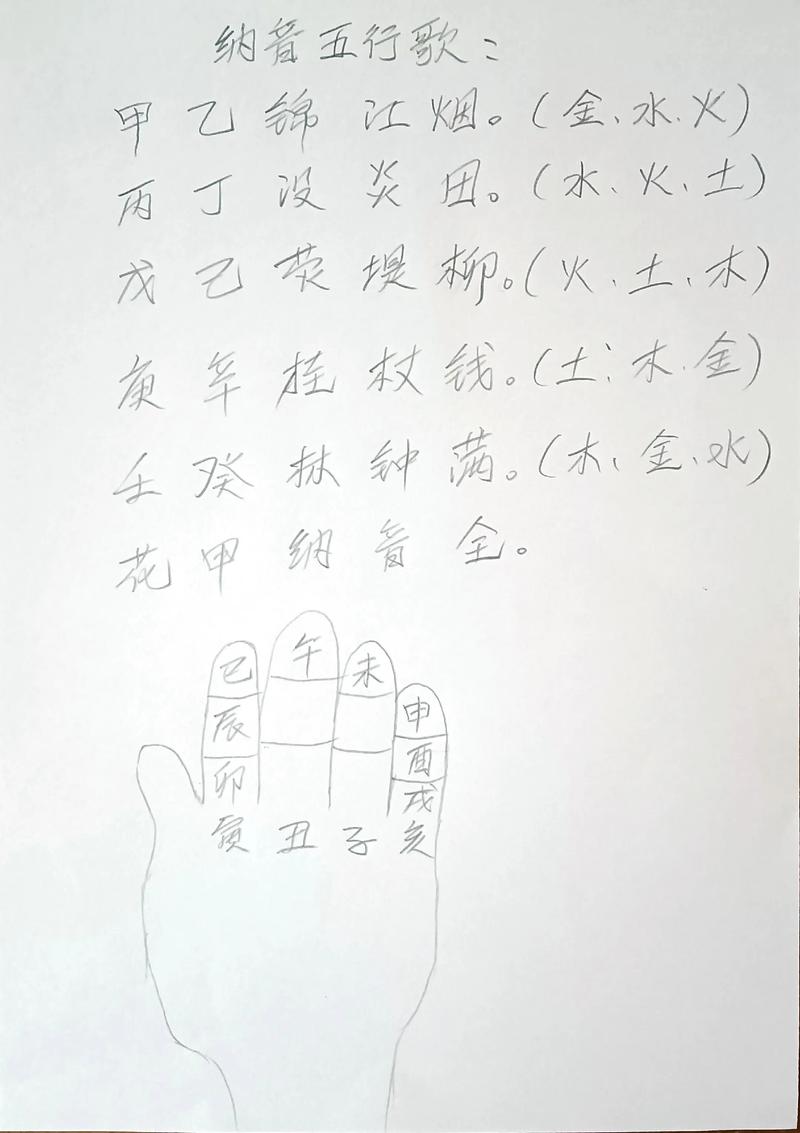 纳音五行歌：
甲乙锦江烟。(金、水.火)
丙丁没炎田。(水、火、土)
戊己荧堤柳。(火、土、木)
庚辛挂杖钱。(土；木.金)
壬癸林钟满。(木、金、水)
花甲纳音全。
巳 午 未
辰 申
卯 酉
戌
寅 丑 子 亥